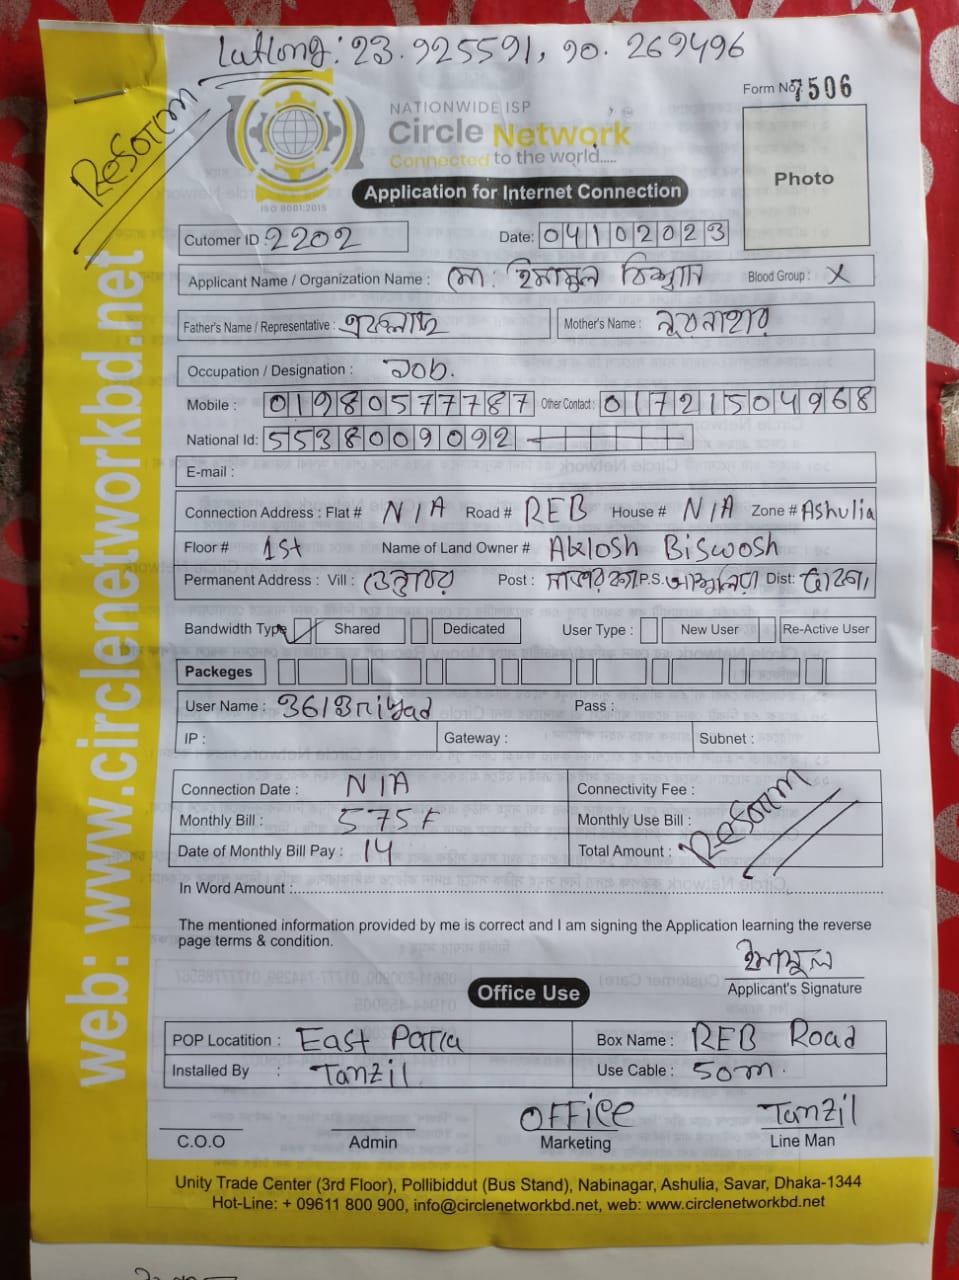 Latlong: 23.925591, 90.269496
Resorm
Form No 7506
NATIONWIDE ISP
Circle Network
Connected to the world.....
ISO 9001:2015
Application for Internet Connection
Photo
Cutomer ID : 2202 Date: 04102023
Applicant Name / Organization Name : মো: ইমামুল বিশ্বাস Blood Group : X
Father's Name / Representative : Mother's Name : নুরনাহার
Occupation / Designation : Job.
Mobile : 01980577787 Other Contact : 01721504968
National Id: 5538009092
E-mail :
Connection Address : Flat # N/A Road # REB House # N/A Zone # Ashulia
Floor # 1st Name of Land Owner # Aklosh Biswosh
Permanent Address : Vill : Post : P.S. আশুলিয়া Dist: ঢাকা
Bandwidth Type Shared Dedicated User Type : New User Re-Active User
Packeges
User Name : 3613riyad Pass :
IP : Gateway : Subnet :
Connection Date : N/A Connectivity Fee :
Monthly Bill : 575 Monthly Use Bill :
Date of Monthly Bill Pay : 14 Total Amount :
Resorm
In Word Amount :
The mentioned information provided by me is correct and I am signing the Application learning the reverse
page terms & condition.
ইমামুল
Applicant's Signature
Office Use
POP Locatition : East Para Box Name : REB Road
Installed By : Tanzil Use Cable : 50m.
OFFice Tanzil
C.O.O Admin Marketing Line Man
Unity Trade Center (3rd Floor), Pollibiddut (Bus Stand), Nabinagar, Ashulia, Savar, Dhaka-1344
Hot-Line: + 09611 800 900, info@circlenetworkbd.net, web: www.circlenetworkbd.net
web: www.circlenetworkbd.net